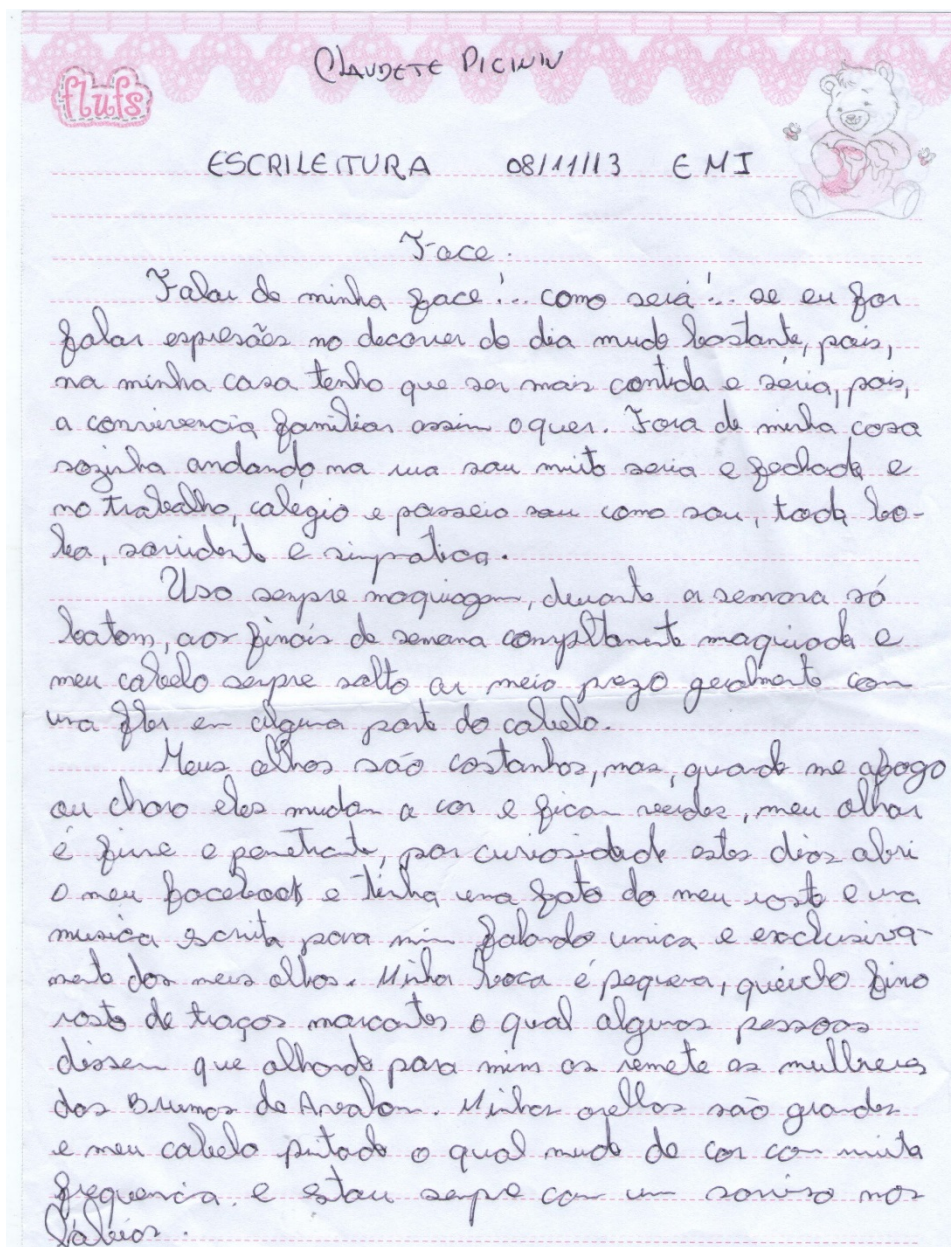 CLAUDETE PICININ
flufs
ESCRILEITURA 08/11/13 E M I
Face.
Falar de minha face!.. como será!.. se eu for
falar espresões no decorrer do dia mudo bastante, pois,
na minha casa tenho que ser mais contida e séria, pois,
a convivencia familiar assim o quer. Fora de minha casa
sozinha andando na rua sou muito seria e fechada e
no trabalho, colégio e passeio sou como sou, toda bo-
ba, sorridente e simpratica.
Uso sempre maquiagem, durante a semana só
batom, aos finais de semana completamente maquiada e
meu cabelo sempre solto ou meio prezo geralmente com
uma flor em alguma parte do cabelo.
Meus olhos são castanhos, mas, quando me afogo
ou choro eles mudam a cor e ficam verdes, meu olhar
é firme e penetrante, por curiosidade estes dias abri
o meu facebook e tinha uma foto do meu rosto e uma
musica escrita para mim falando unica e exclusiva-
mente dos meus olhos. Minha boca é pequena, queicho fino
rosto de traços marcantes o qual algumas pessoas
dissem que olhando para mim os remete as mulheres
das Brumas de Avalon. Minhas orelhas são grandes
e meu cabelo pintado o qual mudo de cor com muita
frequencia. e estou sempre com um sorriso nos
lábios.